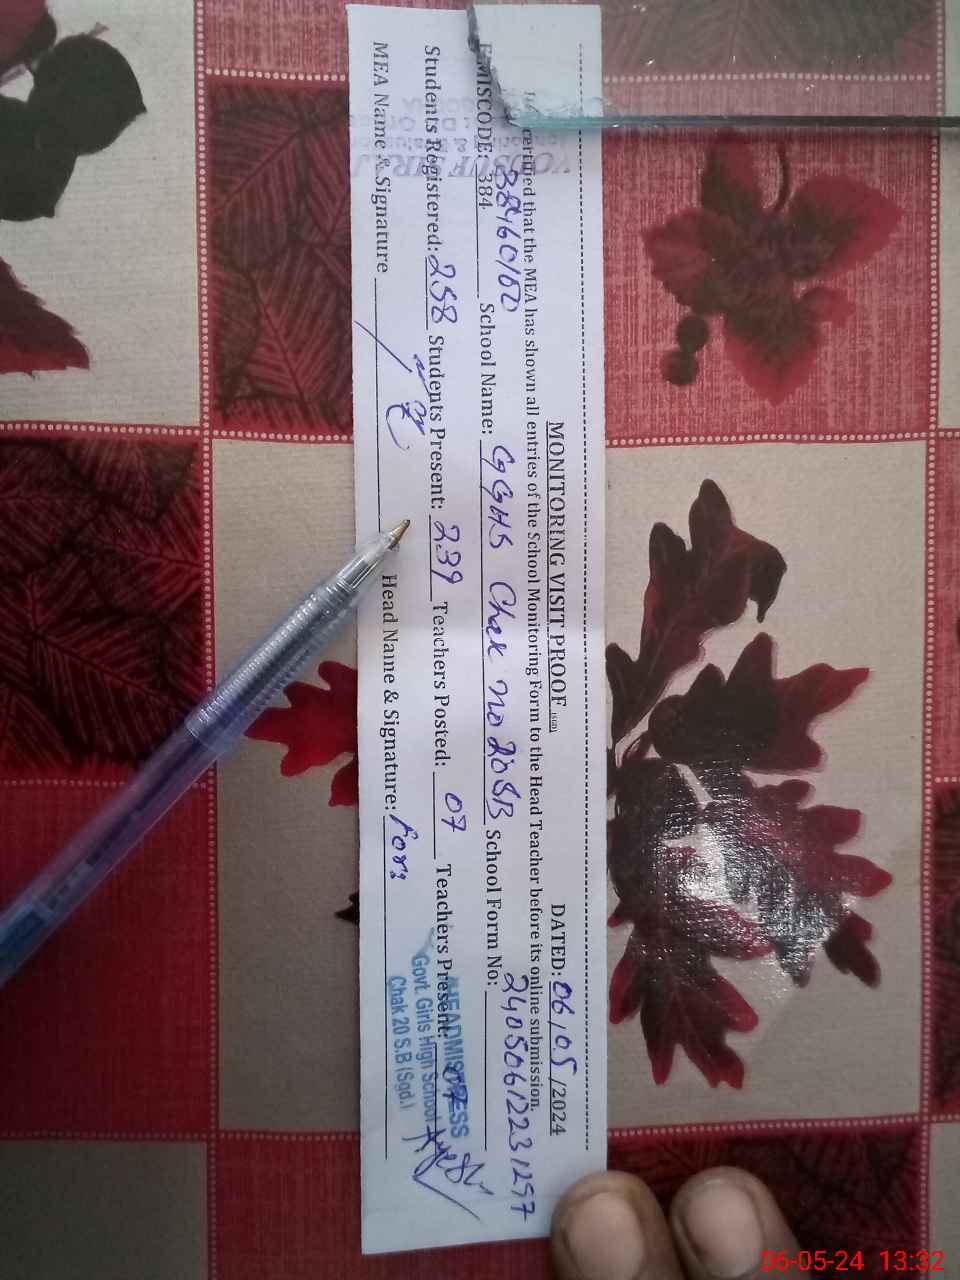 MONITORING VISIT PROOF DATED: 06/05/2024
certified that the MEA has shown all entries of the School Monitoring Form to the Head Teacher before its online submission.
EMISCODE: 384 38460100 School Name: GGHS Chak no 20SB School Form No: 24050612231297
Students Registered: 258 Students Present: 239 Teachers Posted: 07 Teachers Present: 07
MEA Name & Signature Head Name & Signature: For:
HEADMISTRESS
Govt. Girls High School
Chak 20 S.B (Sgd.)
06-05-24 13:32